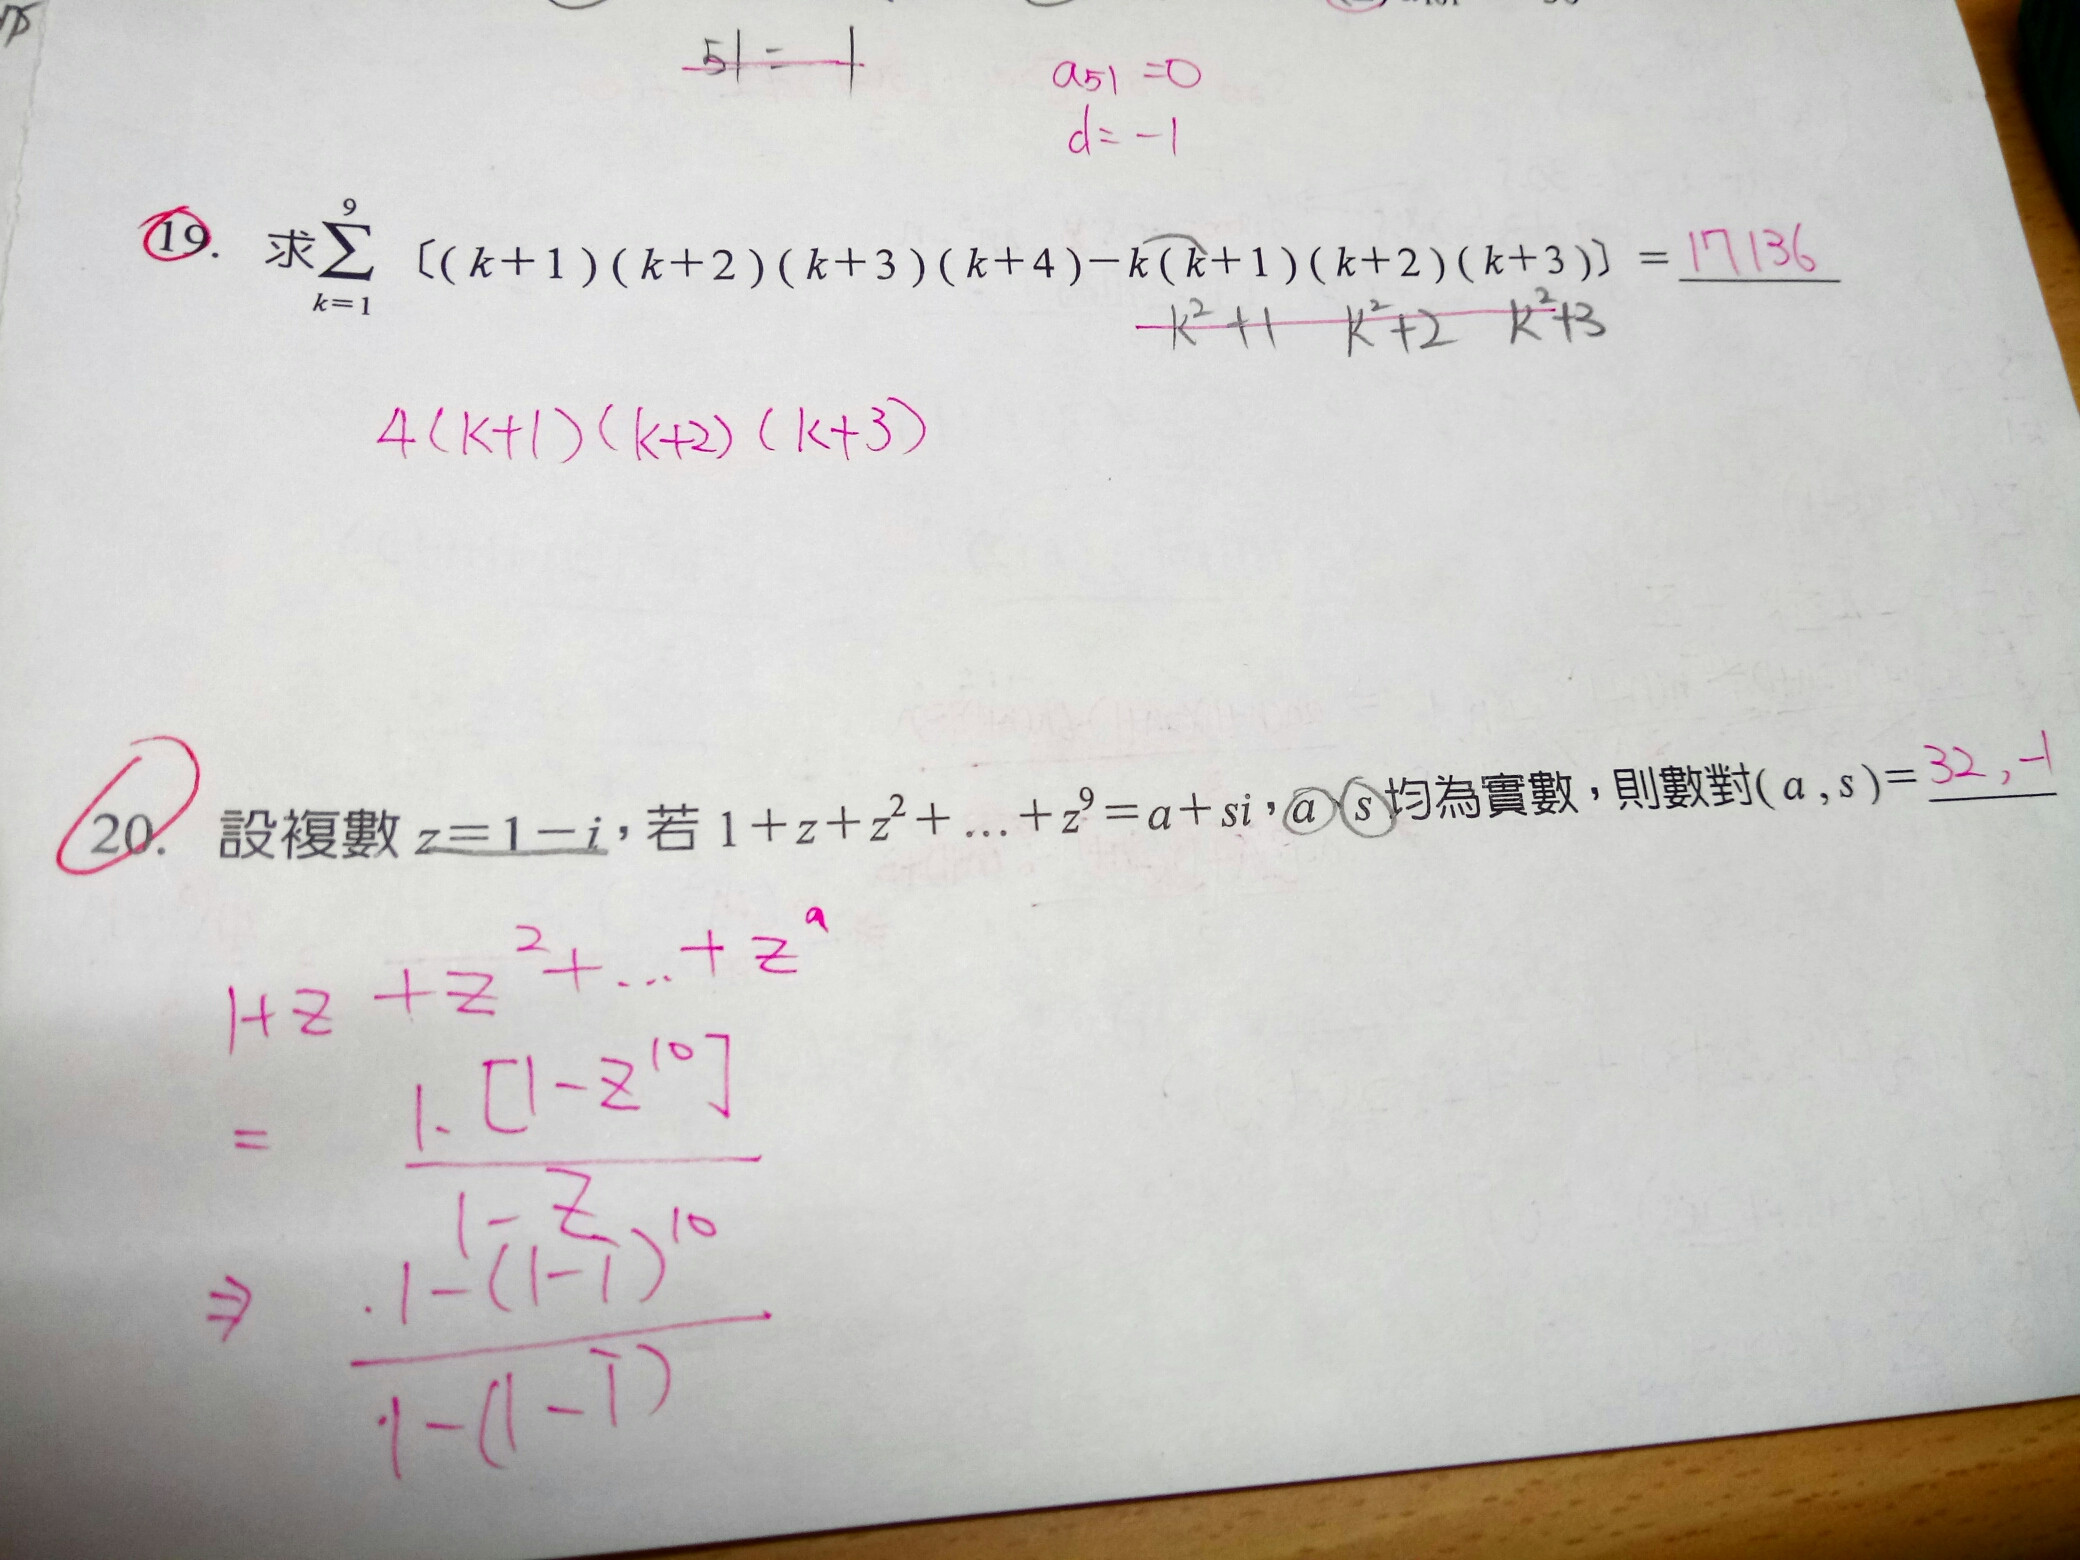 51 = 1
a51 = 0
d = -1
19. 求 9 Σ k=1 〔(k+1)(k+2)(k+3)(k+4)-k(k+1)(k+2)(k+3)〕= 17136
k²+1 k²+2 k²+3
4(k+1)(k+2)(k+3)
20. 設複數 z=1-i，若 1+z+z²+…+z⁹=a+si，a、s 均為實數，則數對(a,s)= 32,-1
1+z+z²+...+z⁹
= 1·[1-z¹⁰]
1-z
⇒ 1-(1-i)¹⁰
1-(1-i)